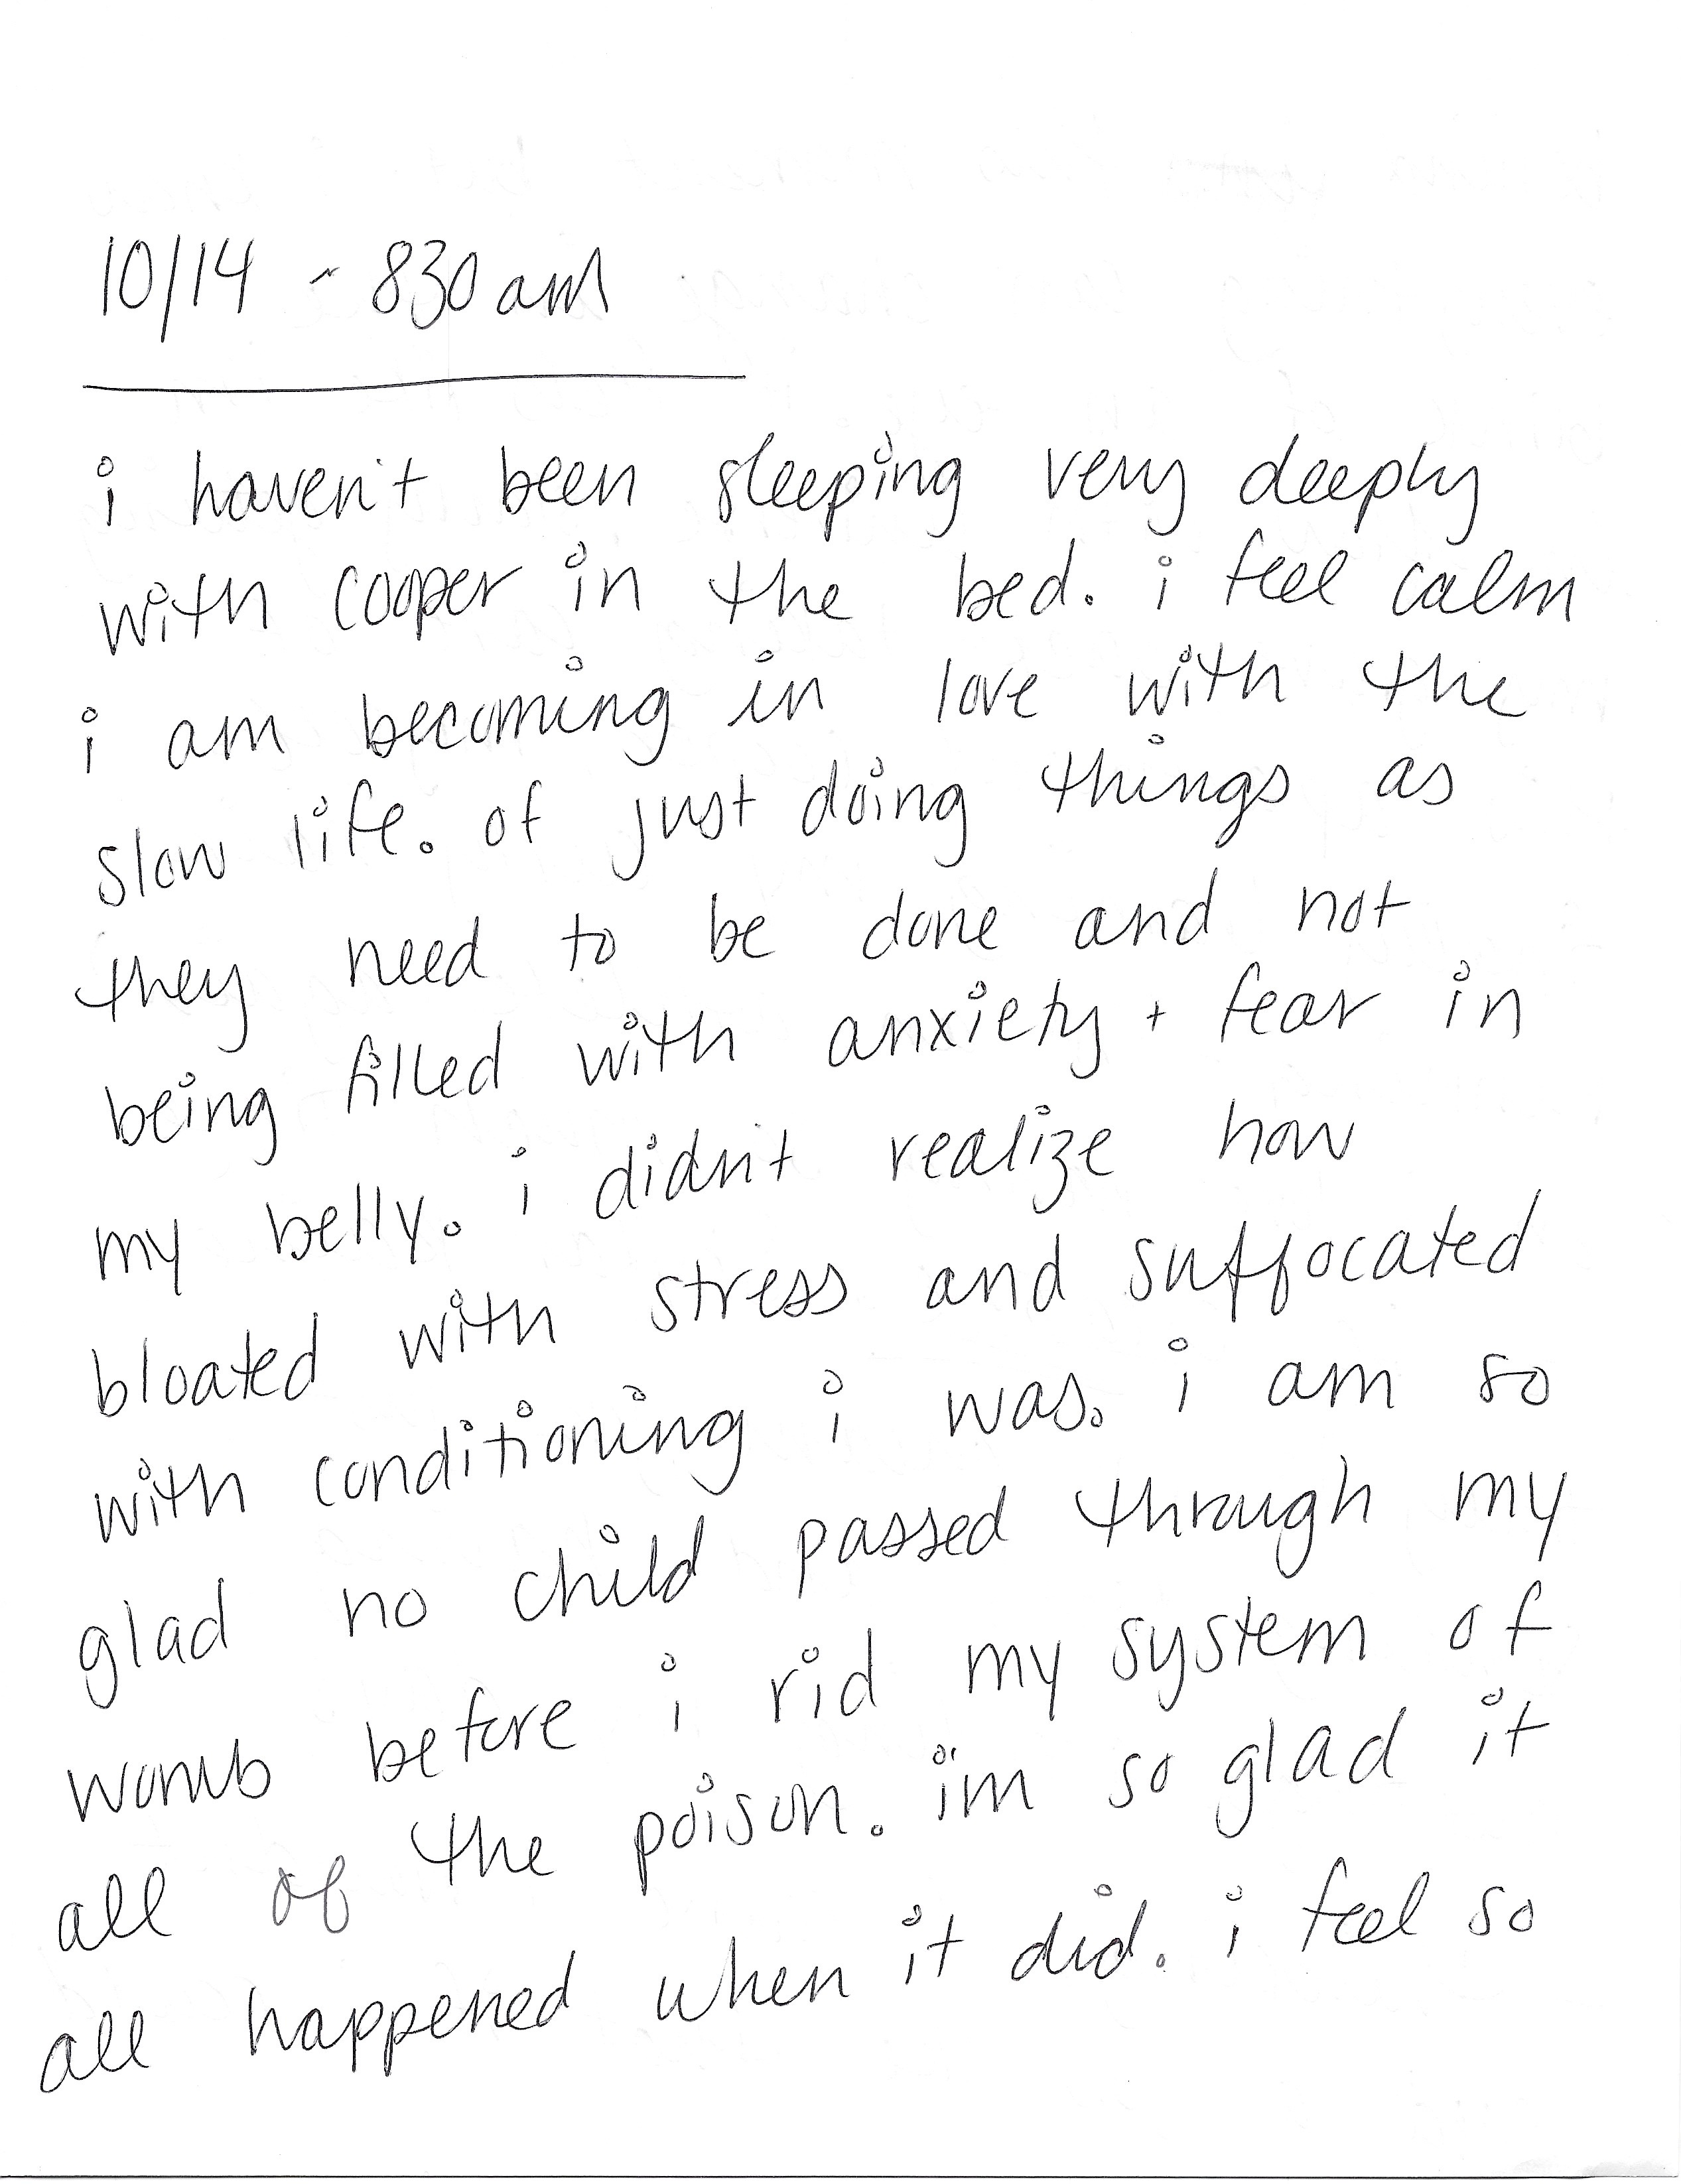 10/14 - 830 am
i haven't been sleeping very deeply
with cooper in the bed. i feel calm
i am becoming in love with the
slow life. of just doing things as
they need to be done and not
being filled with anxiety + fear in
my belly. i didn't realize how
bloated with stress and suffocated
with conditioning i was. i am so
glad no child passed through my
womb before i rid my system of
all of the poison. i'm so glad it
all happened when it did. i feel so